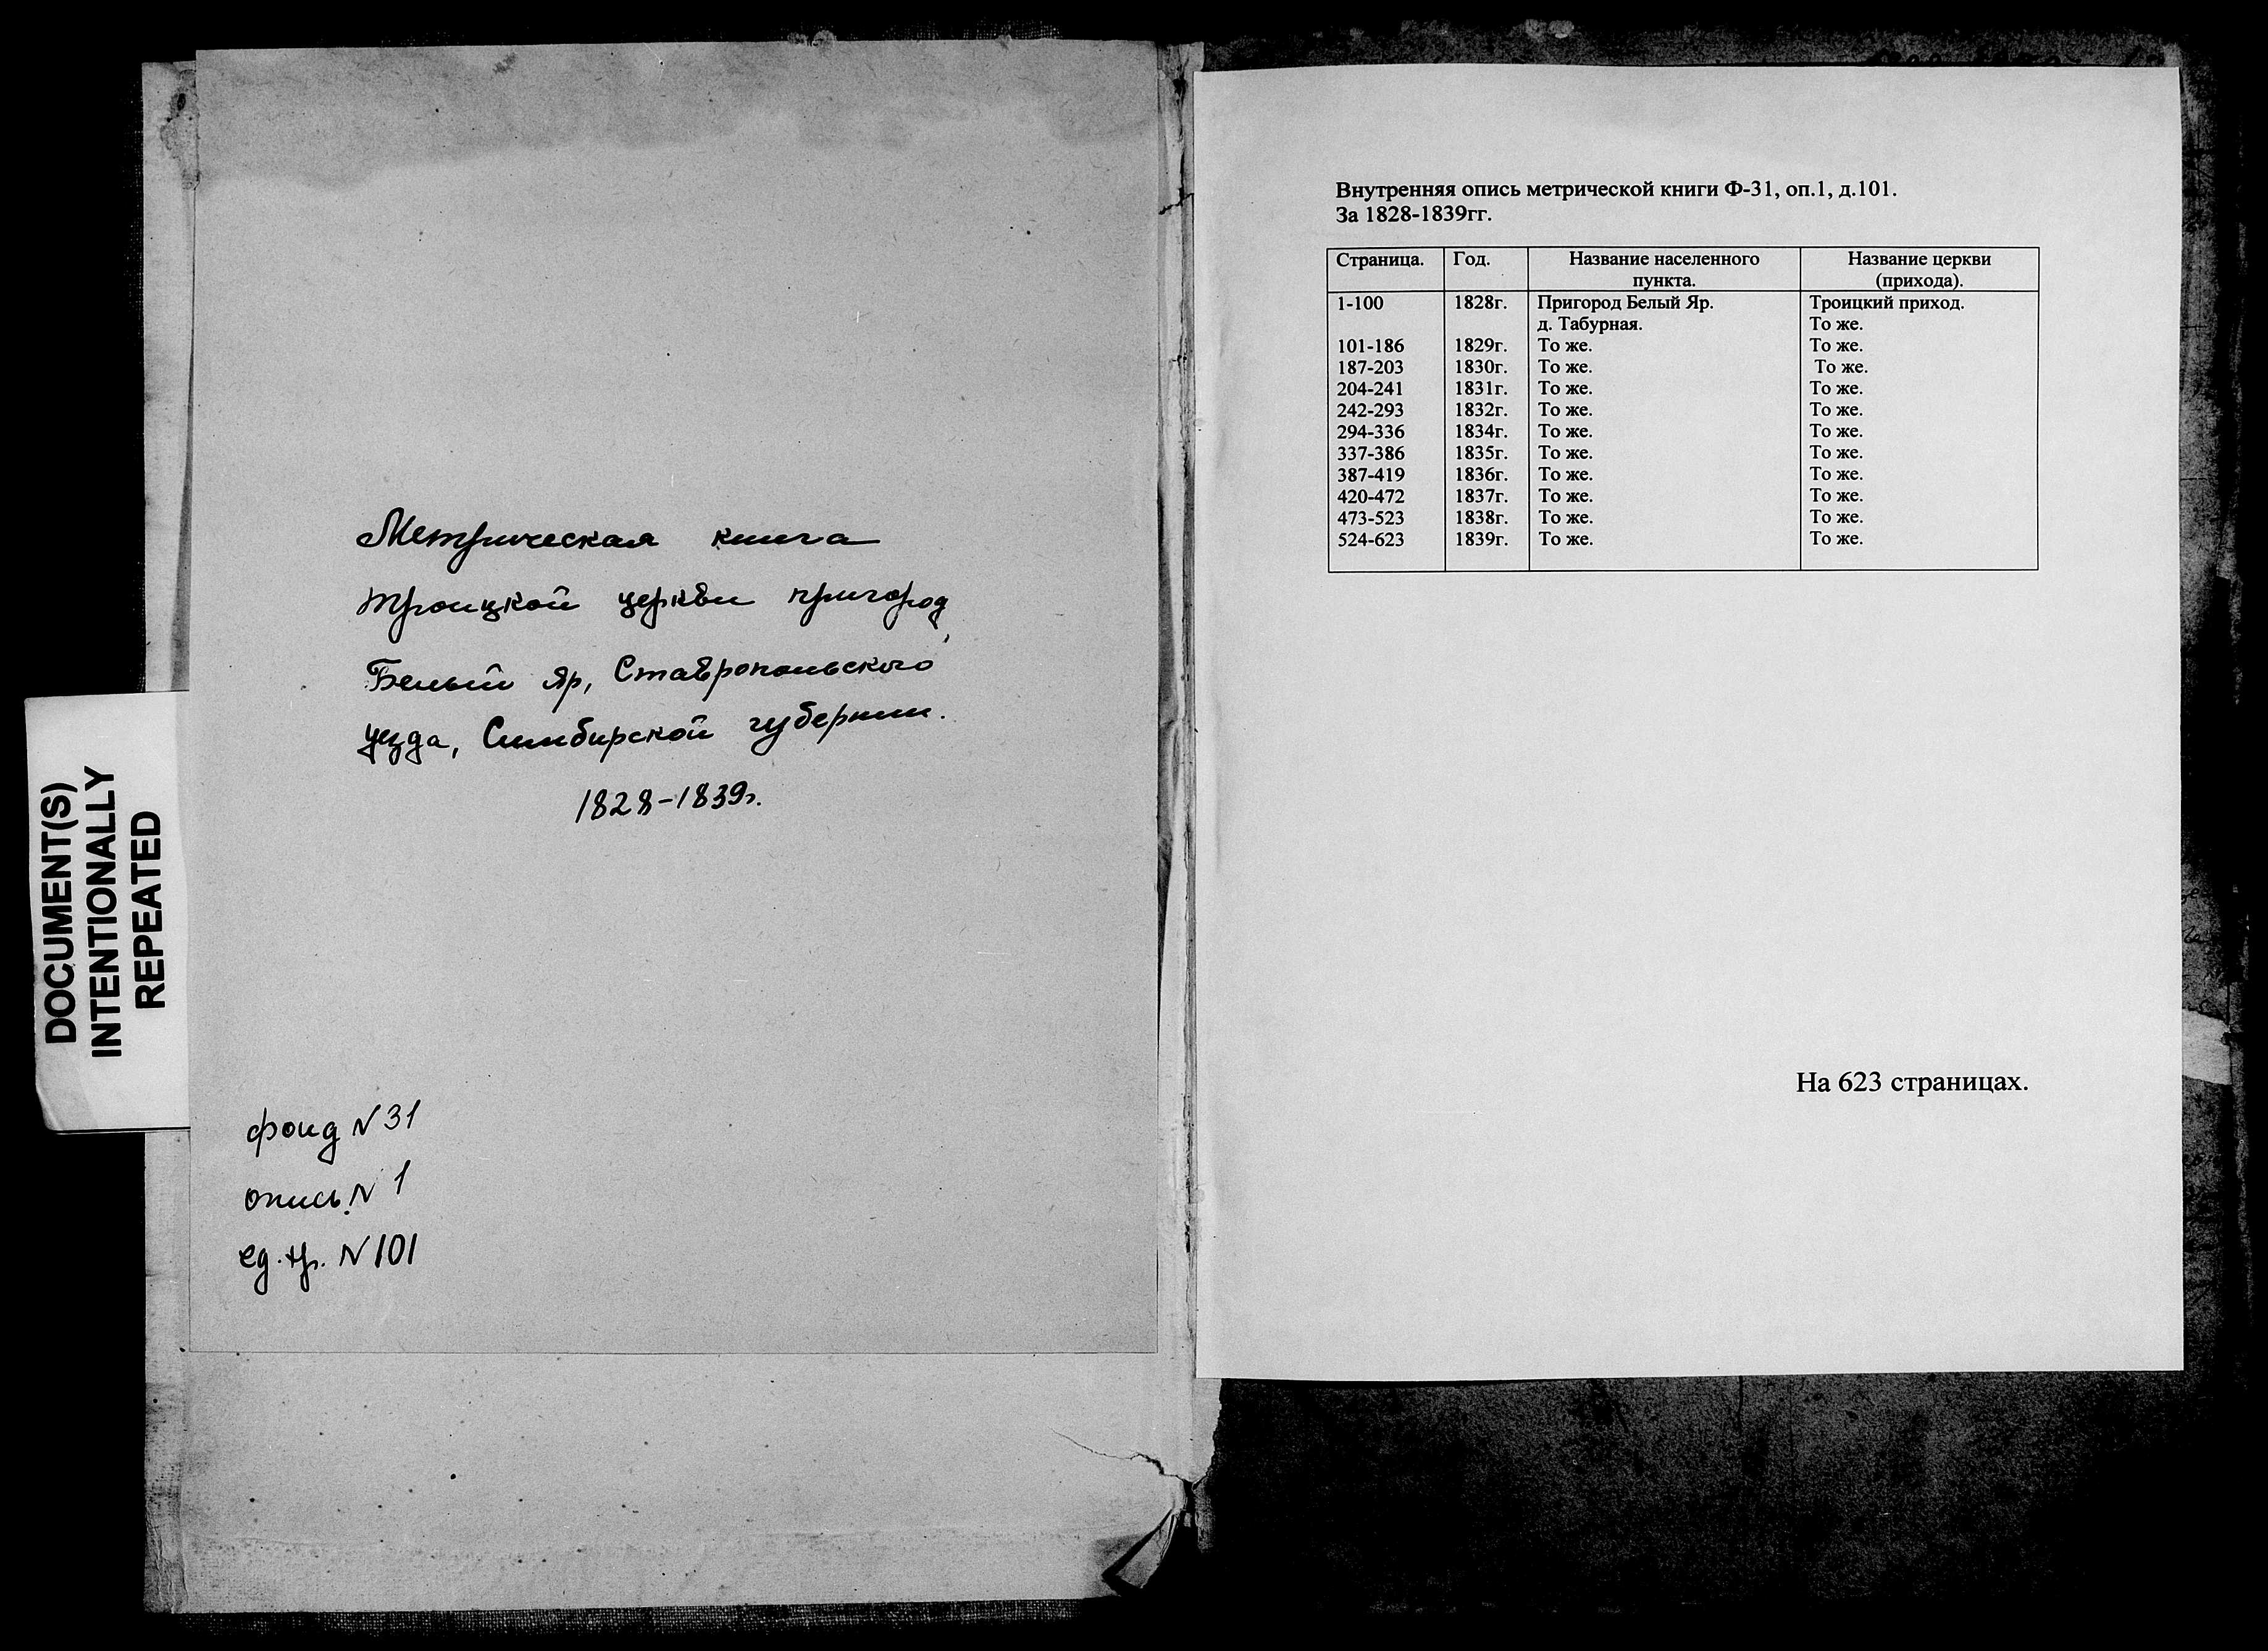 DOCUMENT(S)
INTENTIONALLY
REPEATED
Метрическая книга
Троицкой церкви пригород,
Белый Яр, Ставропольского
уезда, Симбирской губернии.
1828-1839г.
фонд N 31
опись N 1
ед. хр. N 101
Внутренняя опись метрической книги Ф-31, оп.1, д.101.
За 1828-1839гг.
Страница. Год. Название населенного Название церкви
пункта. (прихода).
1-100 1828г. Пригород Белый Яр. Троицкий приход.
д. Табурная. То же.
101-186 1829г. То же. То же.
187-203 1830г. То же. То же.
204-241 1831г. То же. То же.
242-293 1832г. То же. То же.
294-336 1834г. То же. То же.
337-386 1835г. То же. То же.
387-419 1836г. То же. То же.
420-472 1837г. То же. То же.
473-523 1838г. То же. То же.
524-623 1839г. То же. То же.
На 623 страницах.